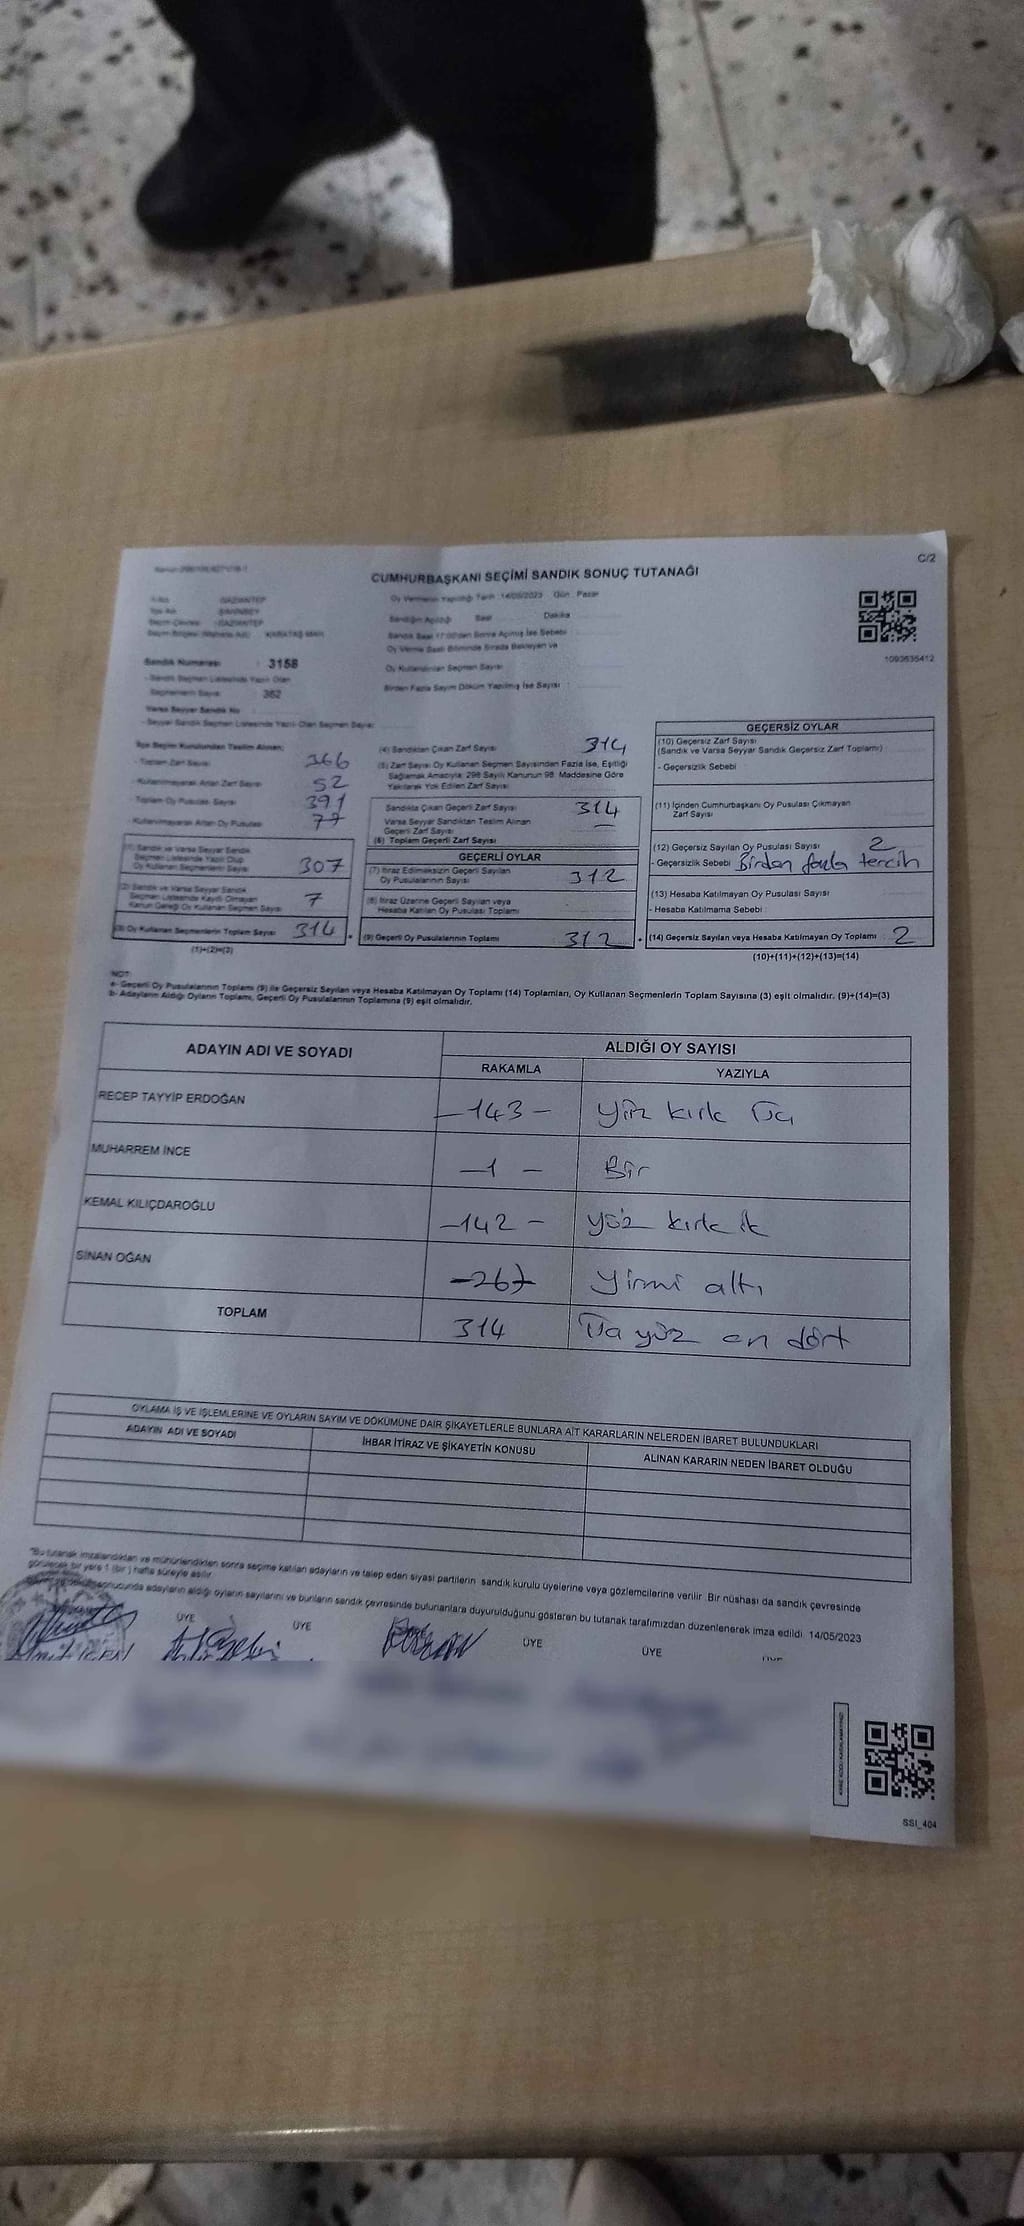 C/2
CUMHURBAŞKANI SEÇİMİ SANDIK SONUÇ TUTANAĞI
Oy Vermenin Yapıldığı Tarih :14/05/2023 Gün : Pazar
GAZİANTEP
Sandığın Açıldığı Saat Dakika
Sandık Saat 17:00'den Sonra Açılmış İse Sebebi
Oy Verme Saati Bitiminde Sırada Bekleyen ve
Oy Kullandırılan Seçmen Sayısı
Birden Fazla Sayım Döküm Yapılmış İse Sayısı :
1093635412
Sandık Numarası : 3158
- Sandık Seçmen Listesinde Yazılı Olan
Seçmenlerin Sayısı : 362
Varsa Seyyar Sandık No
- Seyyar Sandık Seçmen Listesinde Yazılı Olan Seçmen Sayısı
İlçe Seçim Kurulundan Teslim Alınan;
- Toplam Zarf Sayısı 366
- Kullanılmayarak Artan Zarf Sayısı 52
- Toplam Oy Pusulası Sayısı 391
- Kullanılmayarak Artan Oy Pusulası 77
(1) Sandık ve Varsa Seyyar Sandık
Seçmen Listesinde Yazılı Olup
Oy Kullanan Seçmenlerin Sayısı 307
(2) Sandık ve Varsa Seyyar Sandık
Seçmen Listesinde Kayıtlı Olmayan
Kanun Gereği Oy Kullanan Seçmen Sayısı 7
(3) Oy Kullanan Seçmenlerin Toplam Sayısı 314
(1)+(2)=(3)
(4) Sandıktan Çıkan Zarf Sayısı 314
(5) Zarf Sayısı Oy Kullanan Seçmen Sayısından Fazla İse, Eşitliği
Sağlamak Amacıyla; 298 Sayılı Kanunun 98. Maddesine Göre
Yakılarak Yok Edilen Zarf Sayısı
Sandıkta Çıkan Geçerli Zarf Sayısı 314
Varsa Seyyar Sandıktan Teslim Alınan
Geçerli Zarf Sayısı —
(6) Toplam Geçerli Zarf Sayısı
GEÇERLİ OYLAR
(7) İtiraz Edilmeksizin Geçerli Sayılan
Oy Pusulalarının Sayısı 312
(8) İtiraz Üzerine Geçerli Sayılan veya
Hesaba Katılan Oy Pusulası Toplamı
(9) Geçerli Oy Pusulalarının Toplamı 312
GEÇERSİZ OYLAR
(10) Geçersiz Zarf Sayısı
(Sandık ve Varsa Seyyar Sandık Geçersiz Zarf Toplamı)
- Geçersizlik Sebebi
(11) İçinden Cumhurbaşkanı Oy Pusulası Çıkmayan
Zarf Sayısı
(12) Geçersiz Sayılan Oy Pusulası Sayısı 2
- Geçersizlik Sebebi Birden fazla tercih
(13) Hesaba Katılmayan Oy Pusulası Sayısı
- Hesaba Katılmama Sebebi :
(14) Geçersiz Sayılan veya Hesaba Katılmayan Oy Toplamı 2
(10)+(11)+(12)+(13)=(14)
NOT:
a- Geçerli Oy Pusulalarının Toplamı (9) ile Geçersiz Sayılan veya Hesaba Katılmayan Oy Toplamı (14) Toplamları, Oy Kullanan Seçmenlerin Toplam Sayısına (3) eşit olmalıdır. (9)+(14)=(3)
b- Adayların Aldığı Oyların Toplamı, Geçerli Oy Pusulalarının Toplamına (9) eşit olmalıdır.
ADAYIN ADI VE SOYADI ALDIĞI OY SAYISI
RAKAMLA YAZIYLA
RECEP TAYYİP ERDOĞAN -143- Yüz kırk üç
MUHARREM İNCE -1- Bir
KEMAL KILIÇDAROĞLU -142- Yüz kırk ik
SİNAN OĞAN Yirmi altı
TOPLAM 314 Üç yüz on dört
OYLAMA İŞ VE İŞLEMLERİNE VE OYLARIN SAYIM VE DÖKÜMÜNE DAİR ŞİKAYETLERLE BUNLARA AİT KARARLARIN NELERDEN İBARET BULUNDUKLARI
ADAYIN ADI VE SOYADI İHBAR İTİRAZ VE ŞİKAYETİN KONUSU ALINAN KARARIN NEDEN İBARET OLDUĞU
"Bu tutanak imzalandıktan ve mühürlendikten sonra seçime katılan adayların ve talep eden siyasi partilerin sandık kurulu üyelerine veya gözlemcilerine verilir. Bir nüshası da sandık çevresinde
görülecek bir yere 1 (bir) hafta süreyle asılır.
sonucunda adayların aldığı oyların sayılarını ve bunların sandık çevresinde bulunanlara duyurulduğunu gösteren bu tutanak tarafımızdan düzenlenerek imza edildi. 14/05/2023
ÜYE ÜYE ÜYE ÜYE
SSI_404